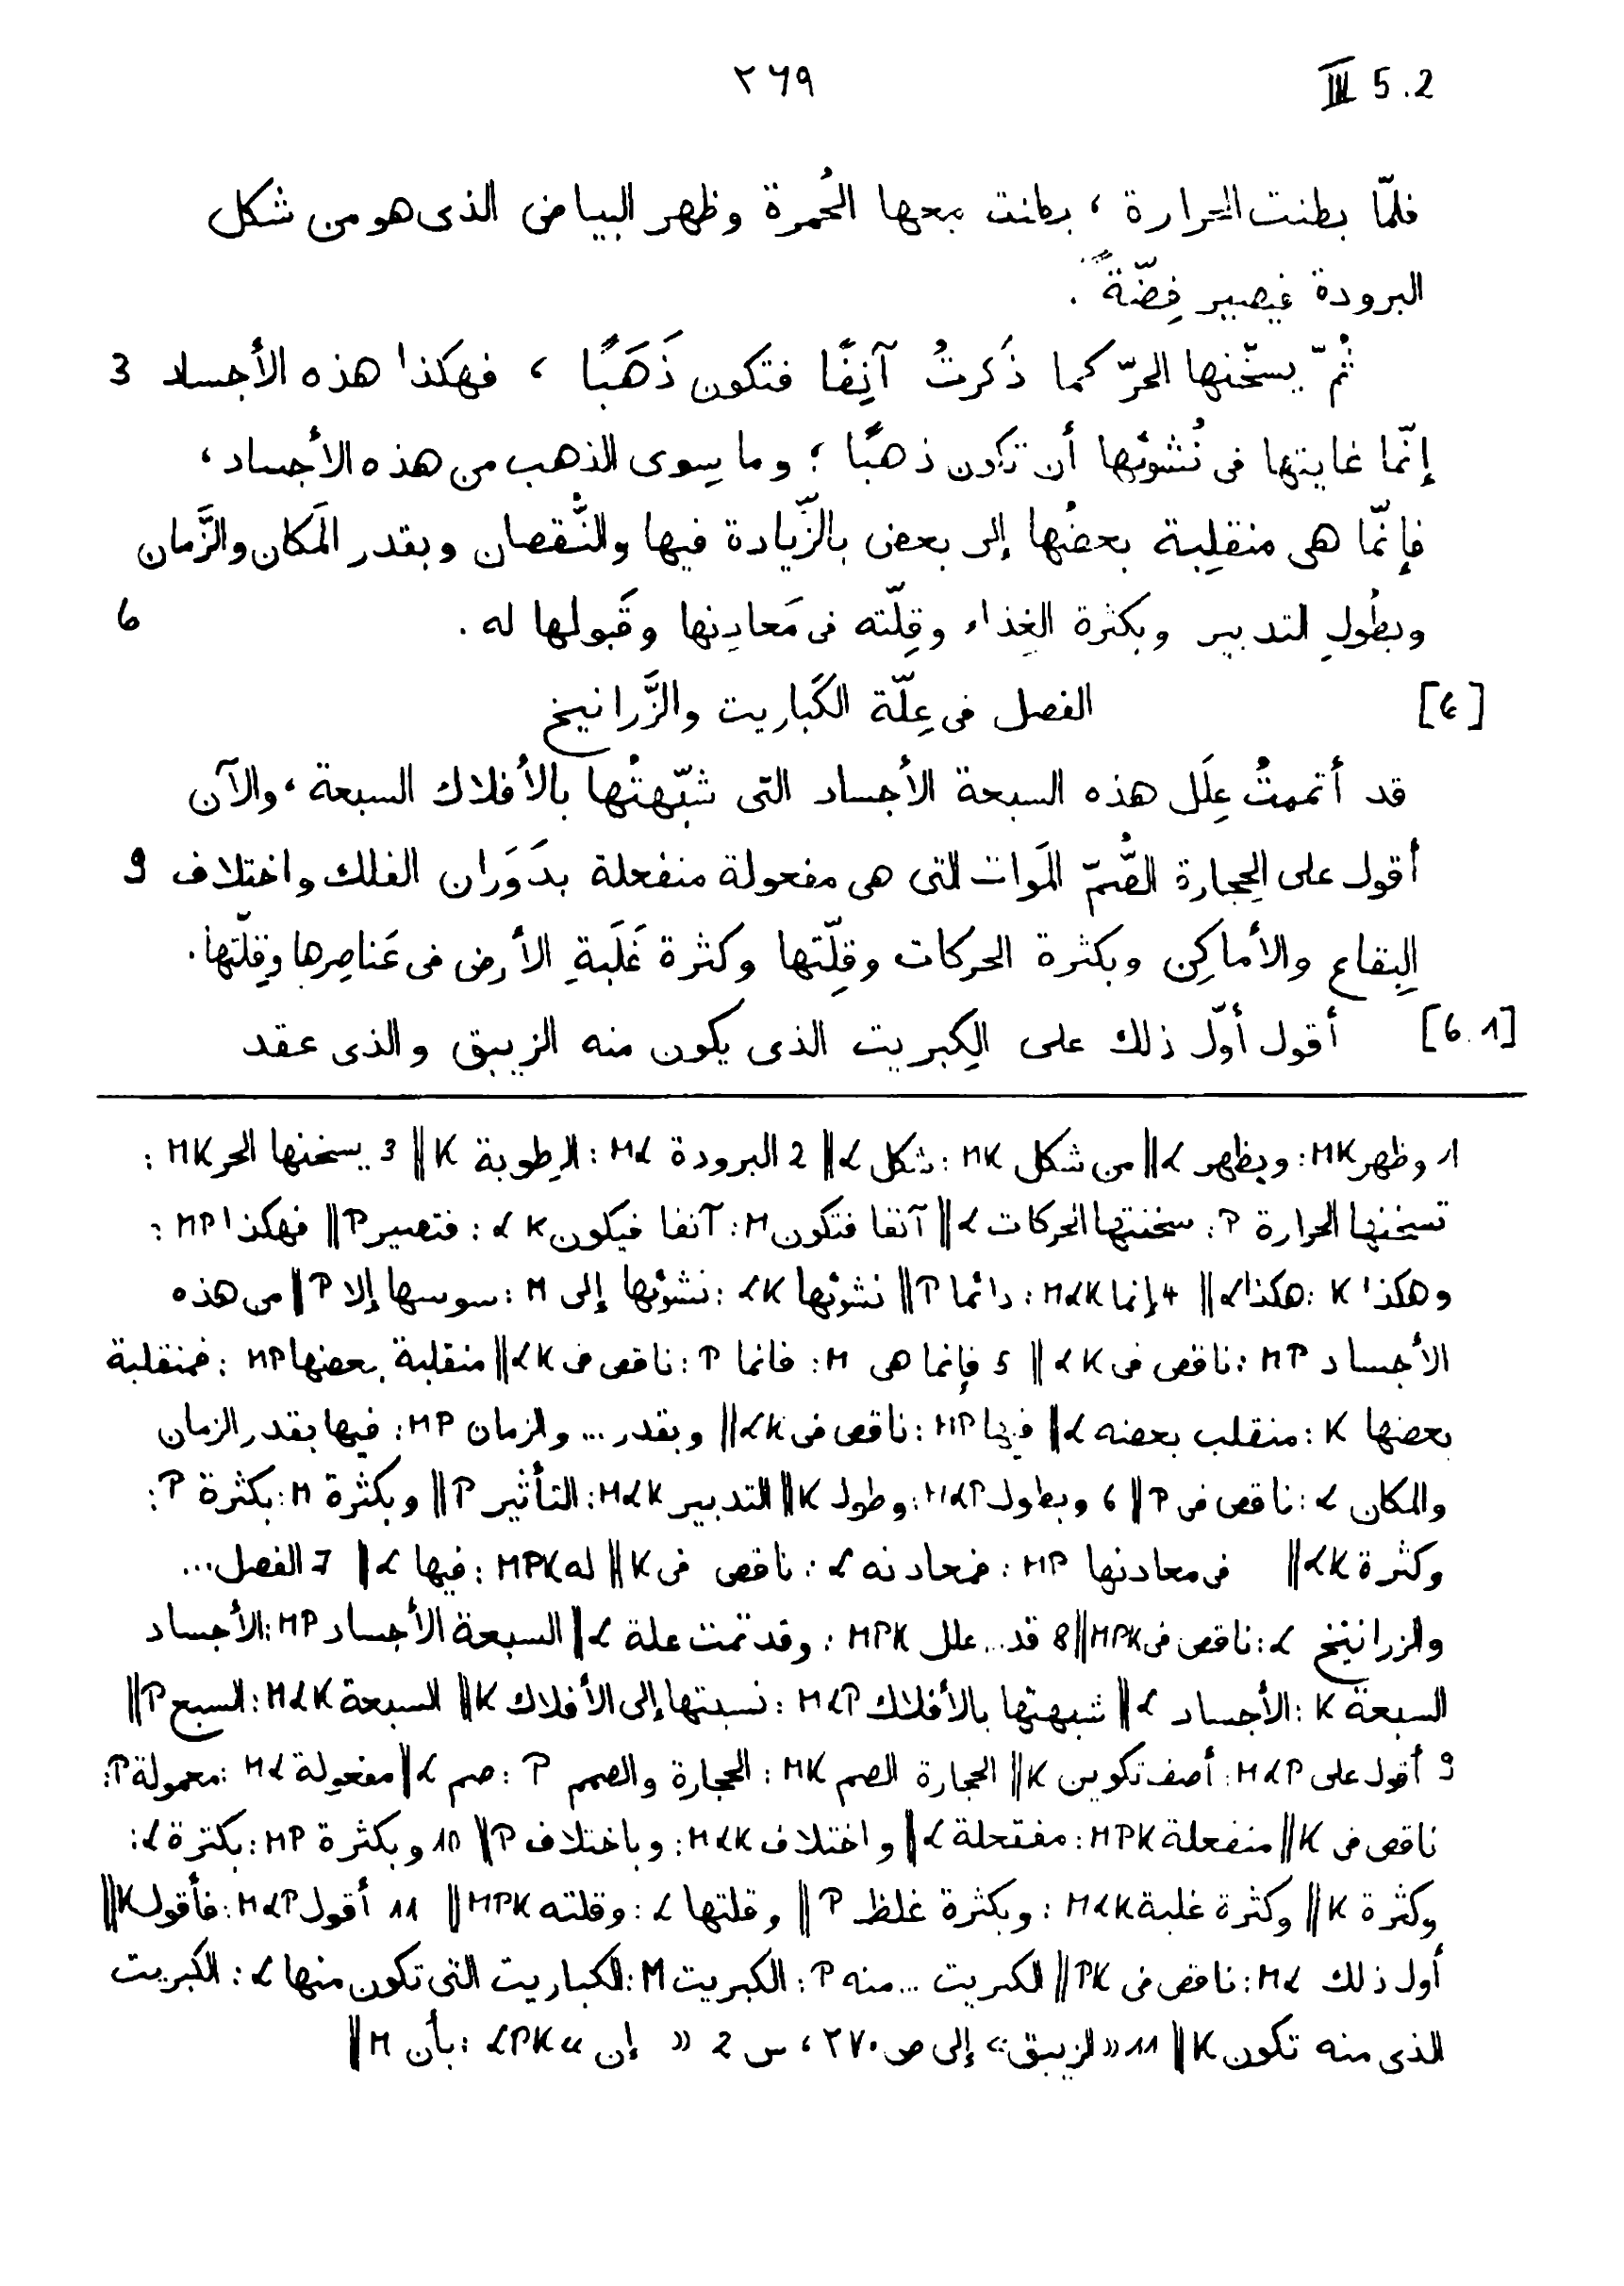 III 5.2 ٢٦٩
فلمّا بطنت الحرارة ، بطنت معها الحُمرة وظهر البياض الذى هو من شكل
البرودة فيصير فِضّةً .
ثُمّ يسخّنها الحرّ كما ذَكرتُ آنِفًا فتكون ذَهَبًا ، فهكذا هذه الأجساد 3
إنّما غايتها فى نُشوئها أن تكون ذهبًا ؛ وما سِوى الذهب من هذه الأجساد ،
فإنّما هى منقلِبة بعضُها إلى بعض بالزّيادة فيها والنُّقصان وبقدر المَكان والزَّمان
وبطُولِ التدبير وبكثرة الغِذاء وقِلّته فى مَعادِنها وقَبولها له . 6
[6] الفصل فى عِلّة الكَباريت والزَّرانيخ
قد أتممتُ عِلَل هذه السبعة الأجساد التى شبّهتُها بالأفلاك السبعة ، والآن
أقول على الحِجارة الصُّمّ المَوات التى هى مفعولة منفعلة بدَوَران الفلك واختلاف 9
البِقاع والأماكِن وبكثرة الحركات وقِلّتها وكثرة غَلَبةِ الأرض فى عَناصِرها وقِلّتها .
[6.1] أقول أوّل ذلك على الكِبريت الذى يكون منه الزيبق والذى عقد
1 وظهر MK : ويظهر α || من شكل MK : شكل α || 2 البرودة Mα : الرطوبة K || 3 يسخنها الحر MK :
تسخنها الحرارة P : سخنتها الحركات α || آنفا فتكون M : آنفا فيكون α K : فتصير P || فهكذا MP :
وهكذا K : هكذا α || 4 إنما MαK : دائما P || نشوئها αK : نشوئها إلى M : سوسها إلا P || من هذه
الأجساد MP : ناقص فى αK || 5 فإنما هى M : فانما P : ناقص فى αK || منقلبة بعضها MP : فمنقلبة
بعضها K : منقلب بعضه α || فيها MP : ناقص فى αK || وبقدر ... والزمان MP : فيها بقدر الزمان
والمكان α : ناقص فى P || 6 وبطول MαP : وطول K || التدبير MαK : التأثير P || وبكثرة M : بكثرة P :
وكثرة αK || فى معادنها MP : فمعادنه α : ناقص فى K || له MPK : فيها α || 7 الفصل ...
والزرانيخ α : ناقص فى MPK || 8 قد ... علل MPK : وقد تمت علة α || السبعة الأجساد MP : الأجساد
السبعة K : الأجساد α || شبهتها بالأفلاك MαP : نسبتها إلى الأفلاك K || السبعة MαK : السبع P ||
9 أقول على MαP : أصف تكوين K || الحجارة الصم MK : الحجارة والصمم P : صم α || مفعولة Mα : معمولة P :
ناقص فى K || منفعلة MPK : مفتعلة α || واختلاف MαK : وباختلاف P || 10 وبكثرة MP : بكثرة α :
وكثرة K || وكثرة غلبة MαK : وبكثرة غلظ P || وقلتها α : وقلته MPK || 11 أقول MαP : فأقول K ||
أول ذلك Mα : ناقص فى PK || الكبريت ... منه P : الكبريت M : الكباريت التى تكون منها α : الكبريت
الذى منه تكون K || 11 «الزيبق» إلى ص ٢٧٠ ، س 2 « إن » αPK : بأن M ||